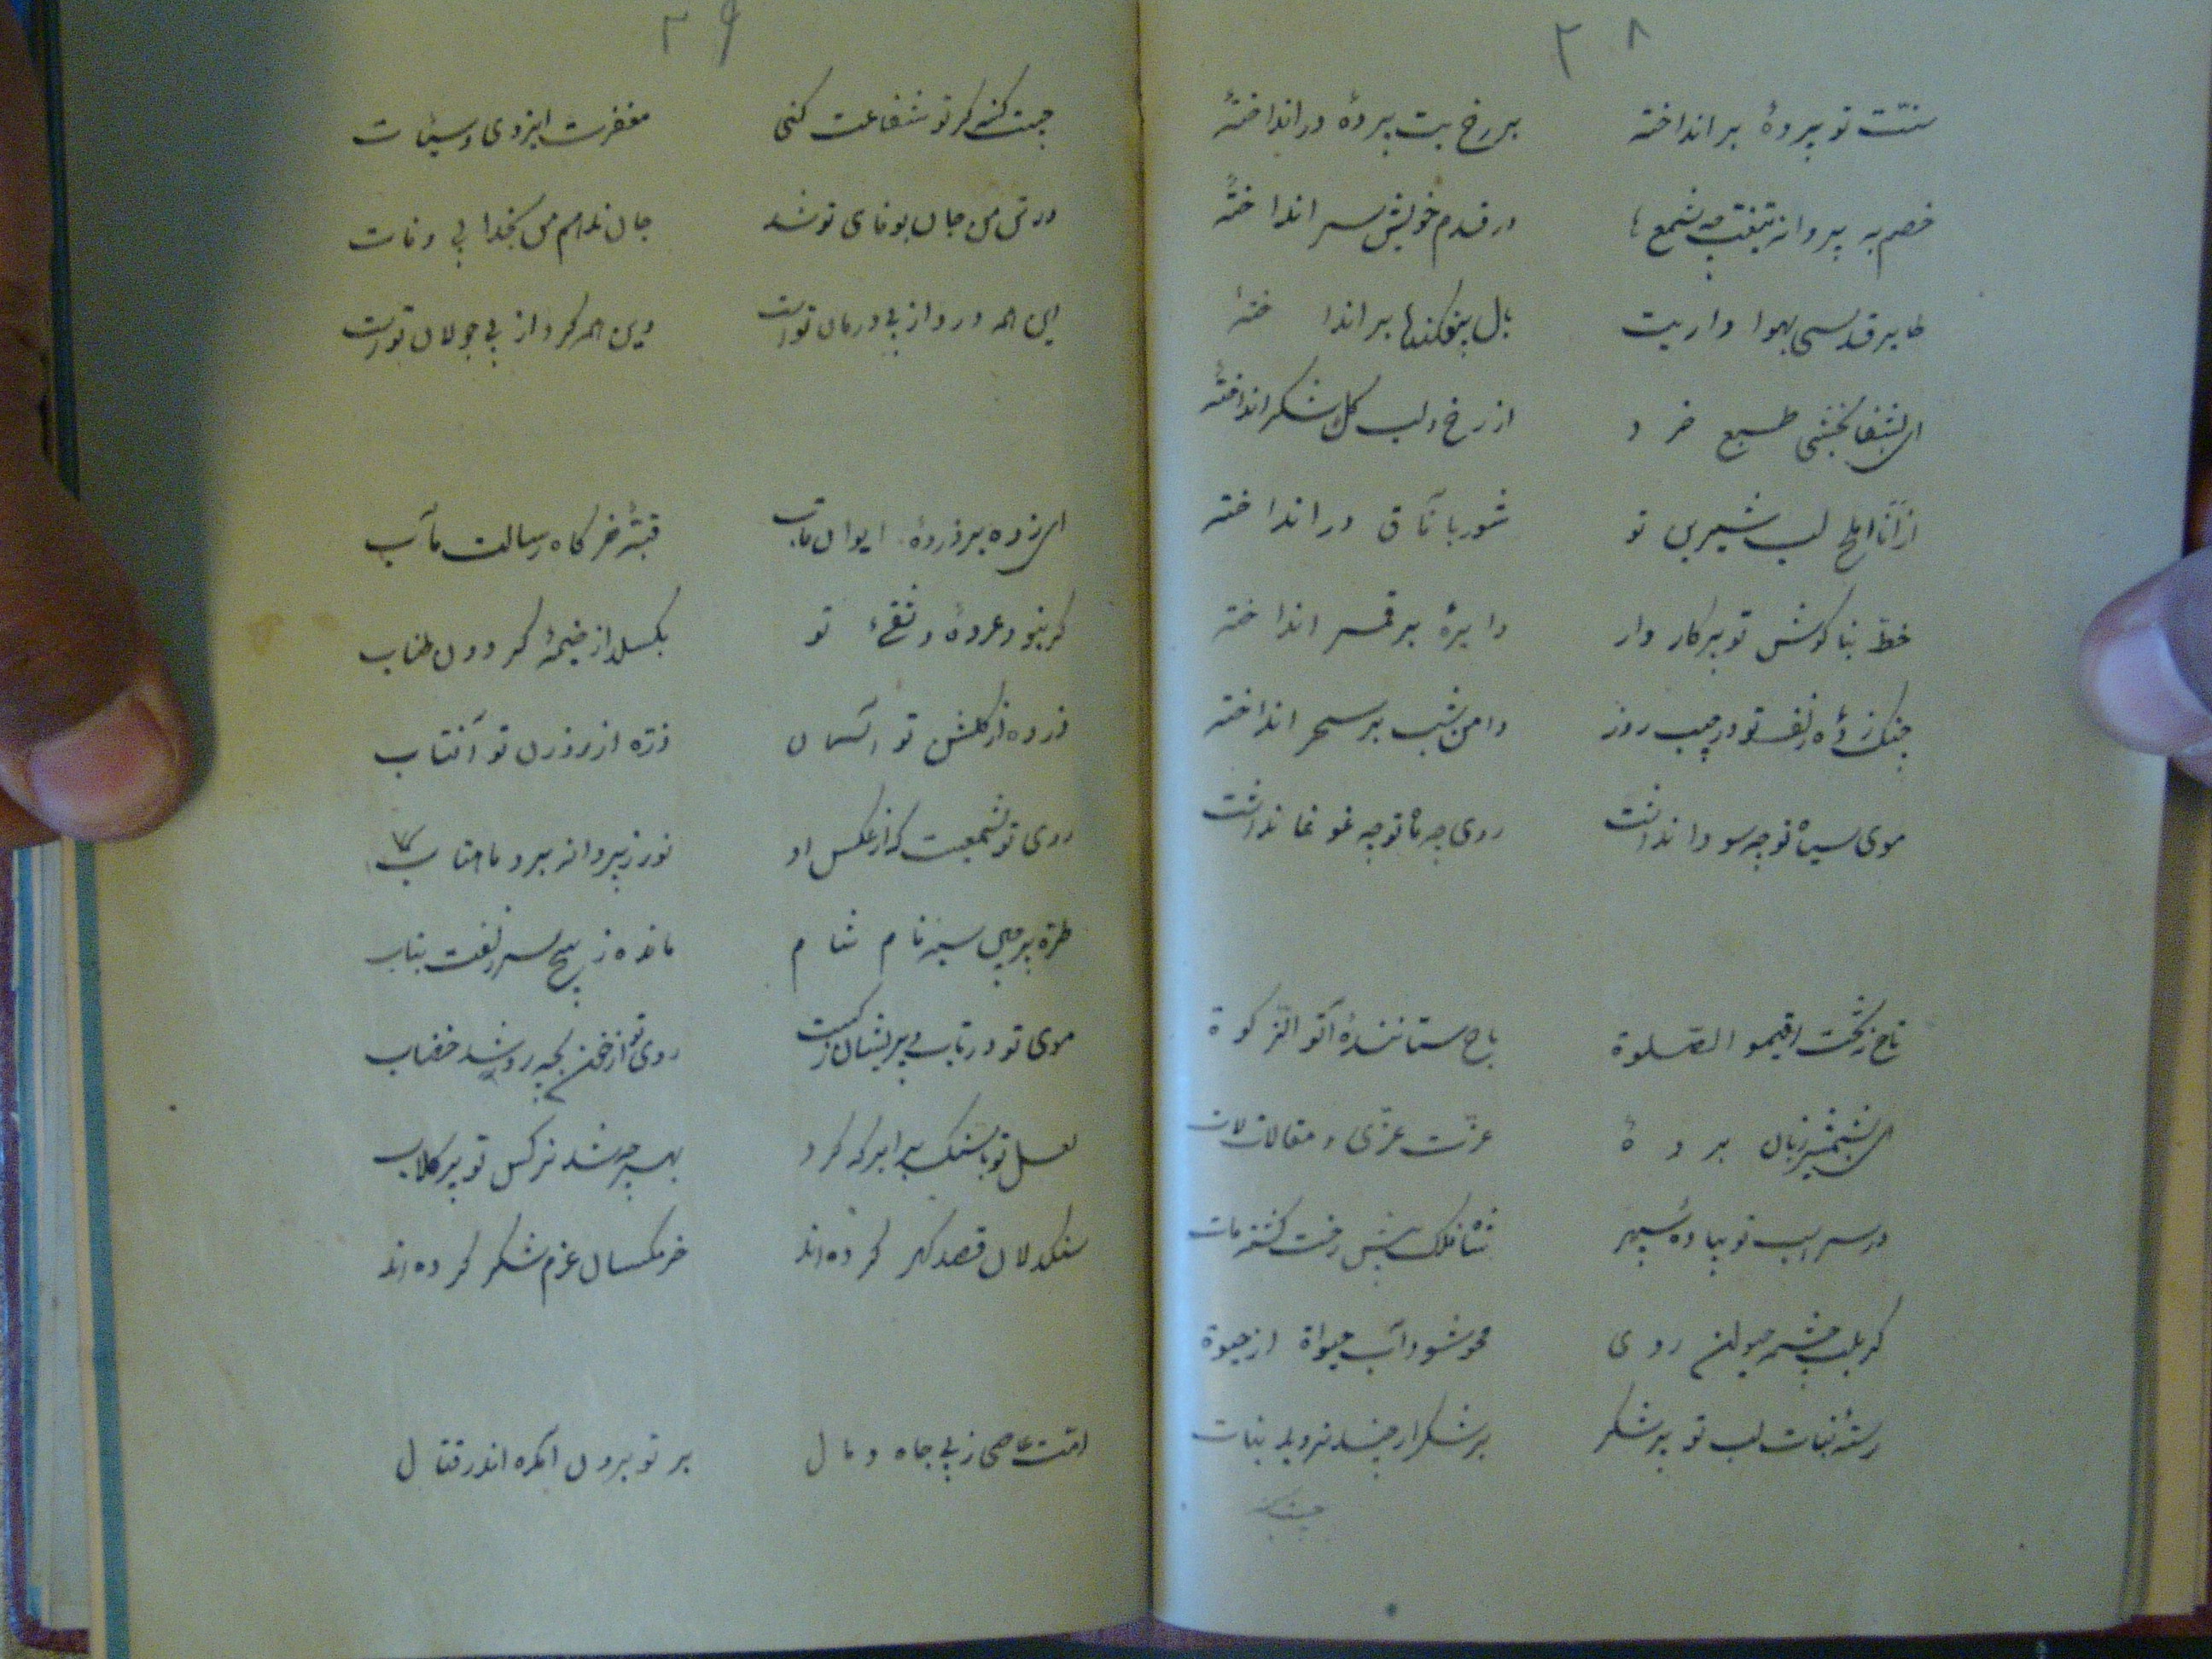 ۳۸
سنّت تو پردهٔ برانداخته بر رخ بت پردهٔ درانداختهٔ
خصم به پروانه در قدم خویش سر انداختهٔ
طایر قدسی بهوا داریت بال بیفکندها برانداختهٔ
ای بشفابخشی طبع خرد از رخ و لب گل شکر انداختهٔ
از انا املح لب شیرین تو شور بآفاق در انداخته
خطّ بناکوش تو پرکار وار دایرهٔ بر قمر انداخته
چنک زدهٔ زلف تو در جیب روز دامن شب بر سحر انداخته
موی سیاه تو چه سودا نداشت روی چه ماه تو چه غوغا نداشت
تاج ز تخت اقیموا الصّلوة باج ستانندهٔ آتوا الزّکوة
ای بشمشیر زبان بردهٔ عزّت عزّی و مقالات لات
در سر اسب تو پیادهٔ سپهر شاه فلک پیش رخت کشته مات
کر بلب چشمهٔ حیوان روی محو شود آب حیوة از حیوة
رستهٔ نبات لب تو بر شکر بر شکر ار چند نروید نبات
۳۹
چیست کنه کر تو شفاعت کنی مغفرت ایزدی و سیّئات
در تن من جان بوفای تو شد جان ندهم من بخدا بی وفات
این همه درد از پی درمان تواست وین همه کرد از پی جولان تواست
ای زده بر ذروهٔ ایوان قاب قبّهٔ خرکاه رسالت مآب
کر نبود عروهٔ وثقیٰ تو بکسلد از خیمهٔ کردون طناب
ذروه از کلشن تو آسمان ذرّه از روزن تو آفتاب
روی تو شمعیست که از عکس او نور ز پروانه برد ماهتاب
طرّه پرچین سیه فام شام مانده ز پیچ سر زلفت بتاب
موی تو در تاب ز پریشان کیست روی تو از خون بچه رو شد خضاب
لعل تو با سنک برابر که کرد بهر چه شد نرکس تو پر کلاب
سنکدلان قصد کهر کرده‌اند خرمکسان عزم شکر کرده‌اند
امّت عاصی ز پی جاه و مال بر تو برون آمده اندر قتال